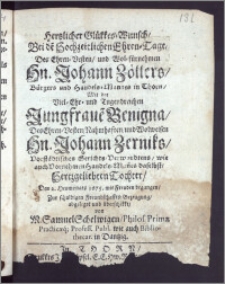 Hertzlicher Glükkes-Wunsch/
Bei dē Hochzeitlichen Ehren-Tage/
Des Ehren-Vesten/ und Wol-fürnehmen
Hn. Johann Zöllers/
Bürgers und Handels-Mannes in Thorn/
Mit der
Viel-Ehr- und Tugendreichen
Jungfrauē Benigna/
Des Ehren-Vesten Nahmhaften und Wolweisen
Hn. Johann Zerniks/
Vorstädtischen Gerichts-Verwandtens/ wie
auch Vornehmen Handels-Mannes daselbst/
Hertzgeliebten Tochter/
Den
1675. mit Freuden begangen/
Zur schuldigen Freundschaffts-Bezeugung/
abgelegt und überschikkt/
von
M. Samuel Schelwigen/ Philos. Prima
Practicaq; Profess. Publ. wie auch Biblio-
thecar. in Dantzig.
In THORN/